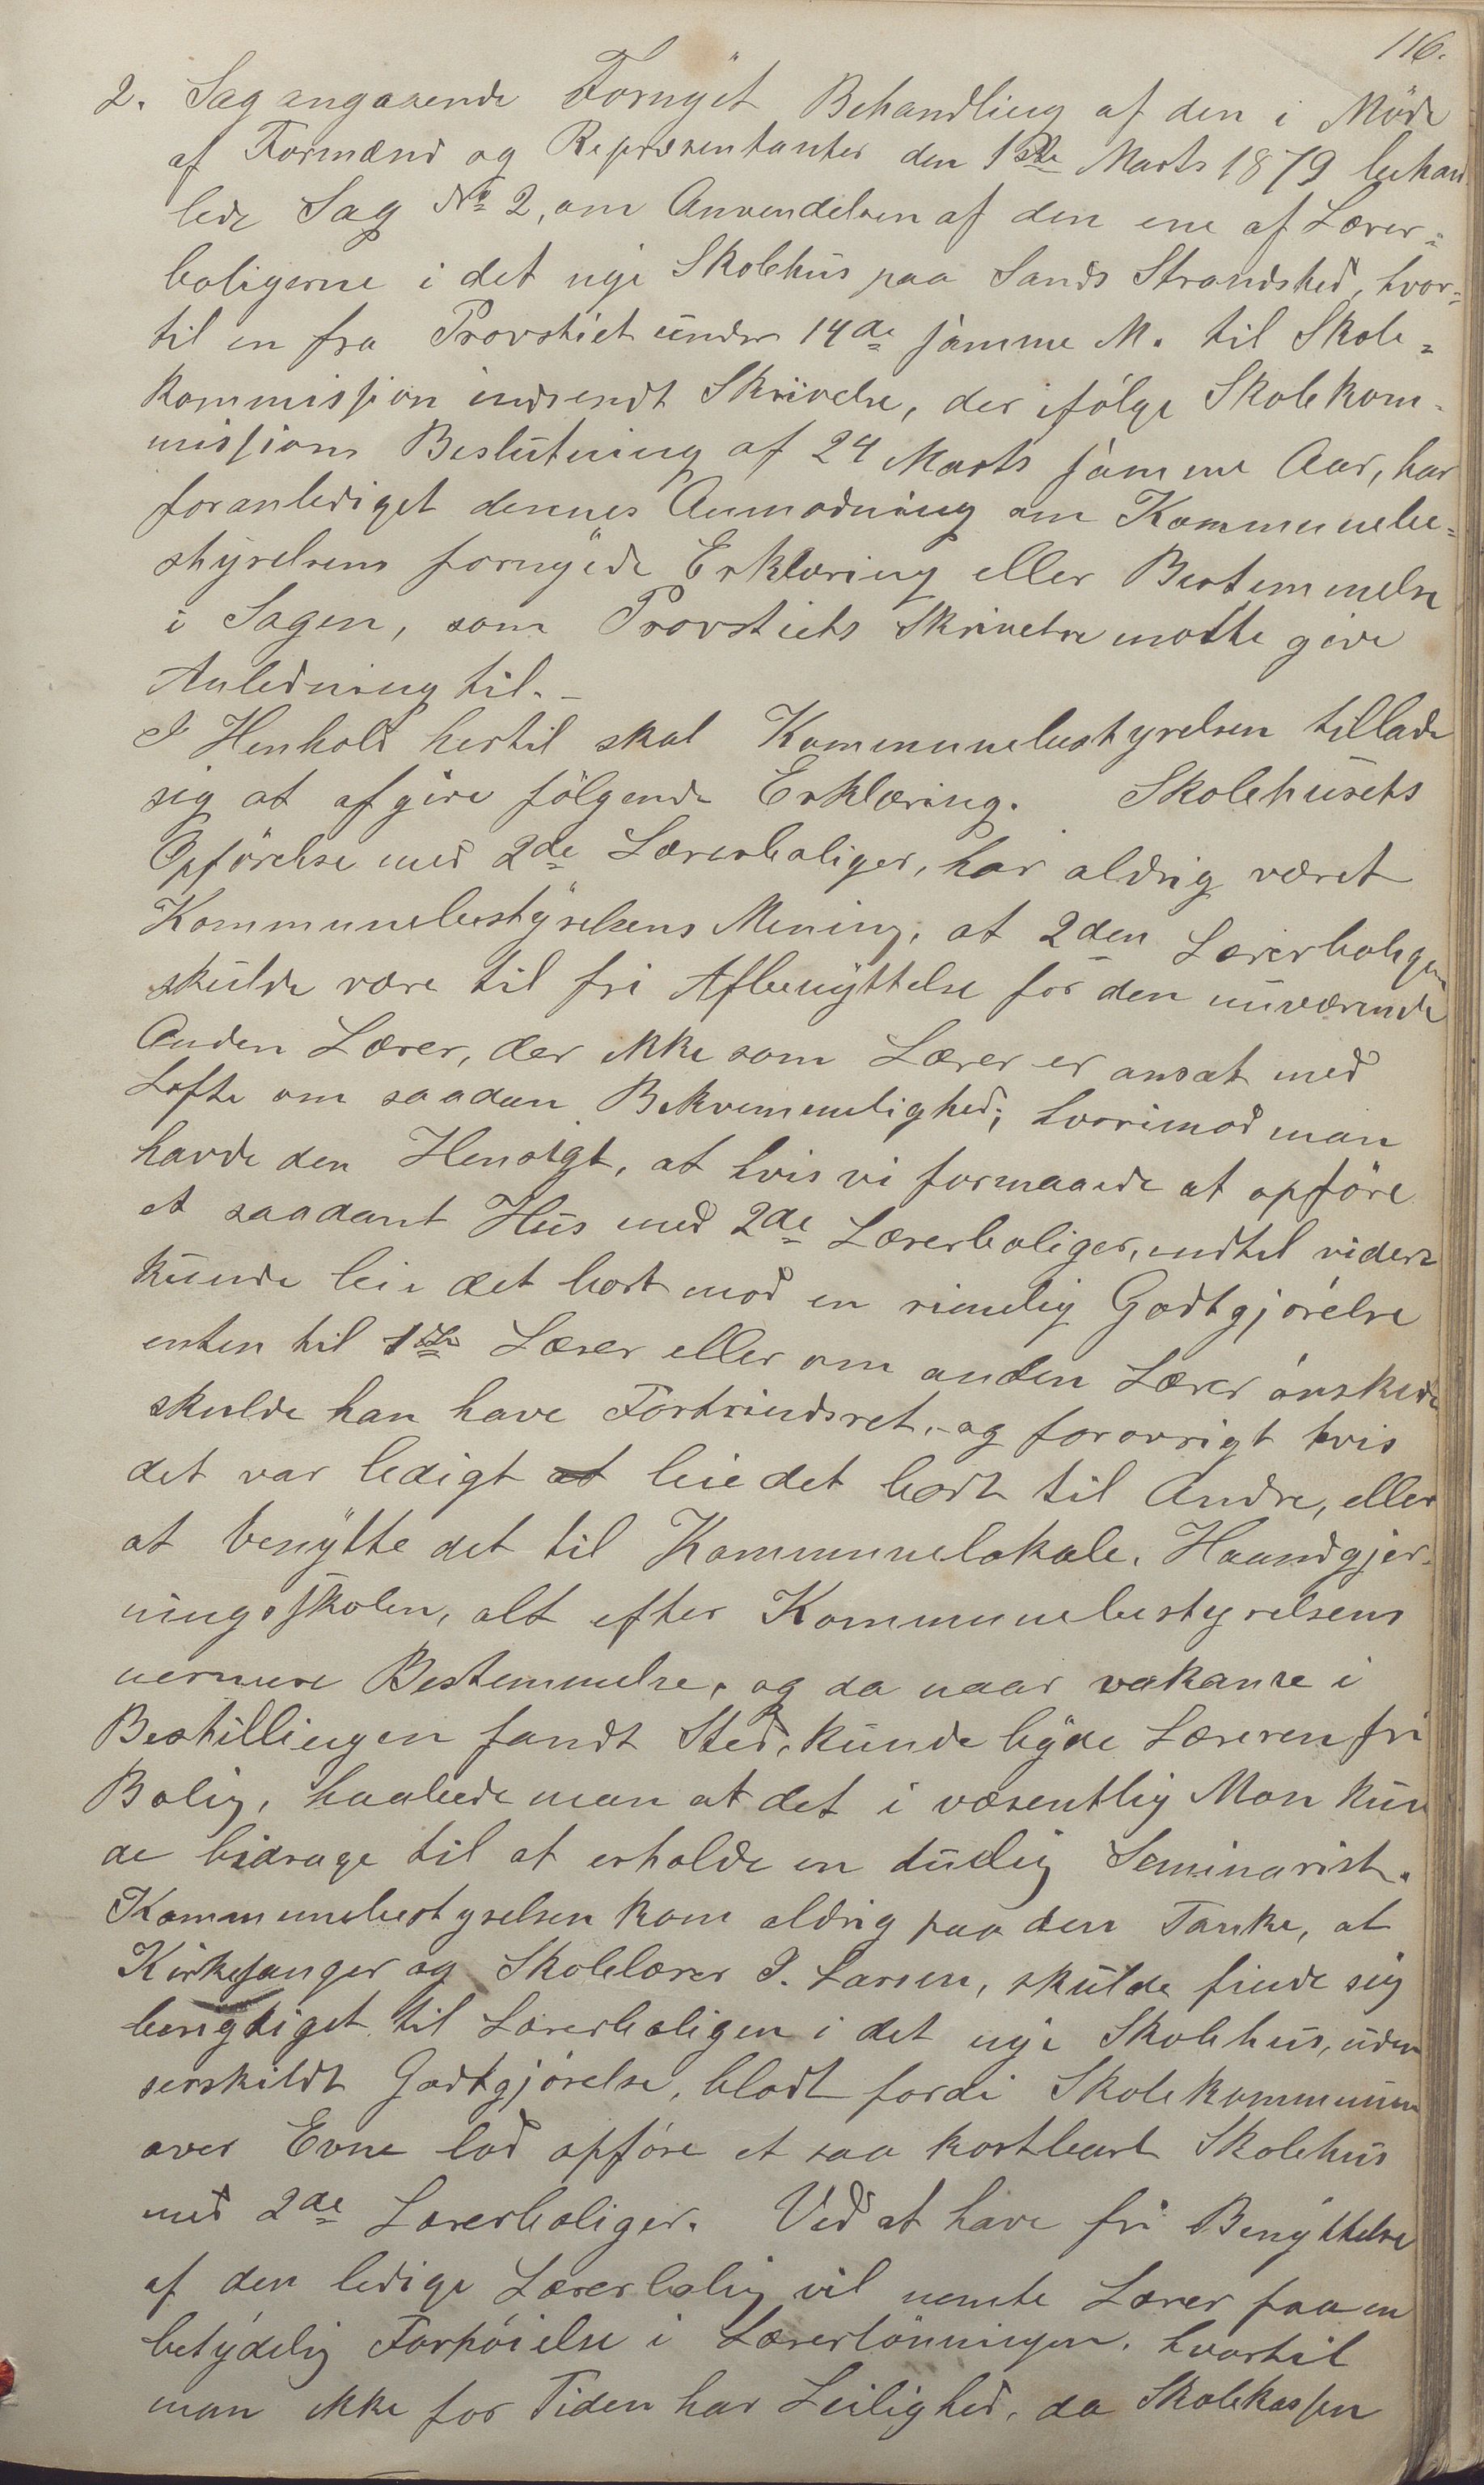 116.
2. Sag angaaende Fornÿet Behandling af den i Möde
af Formænd og Repræsentanter den 1ste Marts 1879 behand
lede Sag No 2, om Anvendelsen af den ene af Lærer=
boligerne i det nye Skolehus paa Sands Strandsted, hvor=
til en fra Provstiet under 14de samme M. til Skole=
kommission indsendt Skrivelse, der ifölge Skolekom=
missions Beslutning af 24 Marts samme Aar, har
foranlediget dennes Anmodning om Kommunebe=
styrelsens fornyede Erklæring eller Bestemmelse
i Sagen, som Provstiets Skrivelse motte give
Anledning til. –
I Henhold hertil skal Kommunebestyrelsen tillade
sig at afgive fölgende Erklæring. Skolehusets
Opförelse med 2de Lærerboliger, har aldrig været
Kommunebestyrelsens Mening, at 2den Lærerboligen
skulde være til fri Afbenyttelse for den nuværende
Anden Lærer, der ikke som Lærer er ansat med
Löfte om saadan Bekvemmelighed; hvorimod man
havde den Hensigt, at hvis vi formaaede at opföre
et saadant Hus med 2de Lærerboliger, indtil videre
kunde leie det bort mod en rimelig Godtgjörelse
enten til 1ste Lærer eller om anden Lærer önskede
skulde han have Fortrindsret, – og forovrigt hvis
det var ledigt at leie det bort til Andre, eller
at benytte det til Kommunelokale, Haandgjer=
ningsskolen, alt efter Kommunebestyrelsens
nermere Bestemmelse, og da naar vakanse i
Bestillingen fandt Sted, kunde byde Læreren fri
Bolig, haabede man at det i væsentlig Mon kun
de bidrage til at erholde en duelig Seminarist.
Kommunebestyrelsen kom aldrig paa den Tanke, at
Kirkesanger og Skolelærer I. Larsen, skulde finde sig
berigtiget til Lærerboligen i det nye Skolehus, uden
serskildt Godtgjörelse, blodt fordi Skolekommunen
over Evne lod opföre et saa kostbart Skolehus
med 2de Lærerboliger. Ved at have fri Benyttelse
af den ledige Lærerbolig vil nemte Lærer faa en
betydelig Forhöielse i Lærerlönningen, hvortil
man ikke for Tiden har Leilighed, da Skolekassen